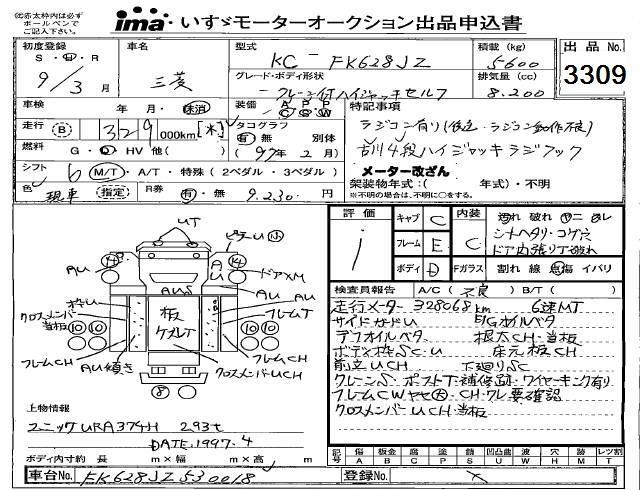 (注)赤太枠内は必ず
ボールペンで
ご記入下さい。
ima いすゞモーターオークション出品申込書
初度登録
S・H・R
9/3月
車名
三菱
型式
KC-FK628JZ
積載 (kg)
5600
グレード・ボディ形状
クレーン付ハイジャッキセルフ
排気量 (cc)
8.200
出品 No.
3309
車検 年 月・抹消
装備 A P P
C S W
特記事項
走行 B 329 000km [木]
タコグラフ
有・無 別体
(97年2月)
ラジコン有り
古川4段ハイジャッキ ラジ フック
燃料 G・D・HV 他( )
メーター改ざん
シフト 6 M/T・A/T・特殊 (2ペダル・3ペダル)
架装物年式:( 年式)・不明
※不明の場合は、不明に○をする。
色 現車 指定
R券 有・無 9.230円
評価
キャブ C
内装 C
汚れ 破れ ヤニ ムレ
シートヘタリ・コゲ穴
ドア内張り下破れ
フレーム E
ボディ D
Fガラス 割れ 線 点傷 イバリ
検査員報告 A/C( 不良 ) B/T( )
走行メーター 328068km 6速MT
サイドガードU E/Gオイルベタ
デフオイルベタ 根太CH・当板
ボディ枠SC・U 床元板CH
前立UCH 下廻りSC
クレーンS・ポストT・補修跡・ワイヤーキング有り
フレームCWヤセ大・CH・クレ要確認
クロスメンバーUCH・当板
UT
ピラーU 小
AU
ドアXM
AU
U
AUS
AU
枠U
AU
クロスメンバー当板
板
ケズレT
フレームT
フレームCH
フレームCH
AU傾き
クロスメンバーUCH
上物情報
ユニックURA374H 293t
DATE:1997.4
ボディ内寸約 長 m×幅 m×高 m
記号 傷 A 板金 B 腐 C 塗 P 錆 S 凹凸曲 U 波 W 穴 H 跡 M レツ割 T
車台No. FK628JZ530018
登録No.